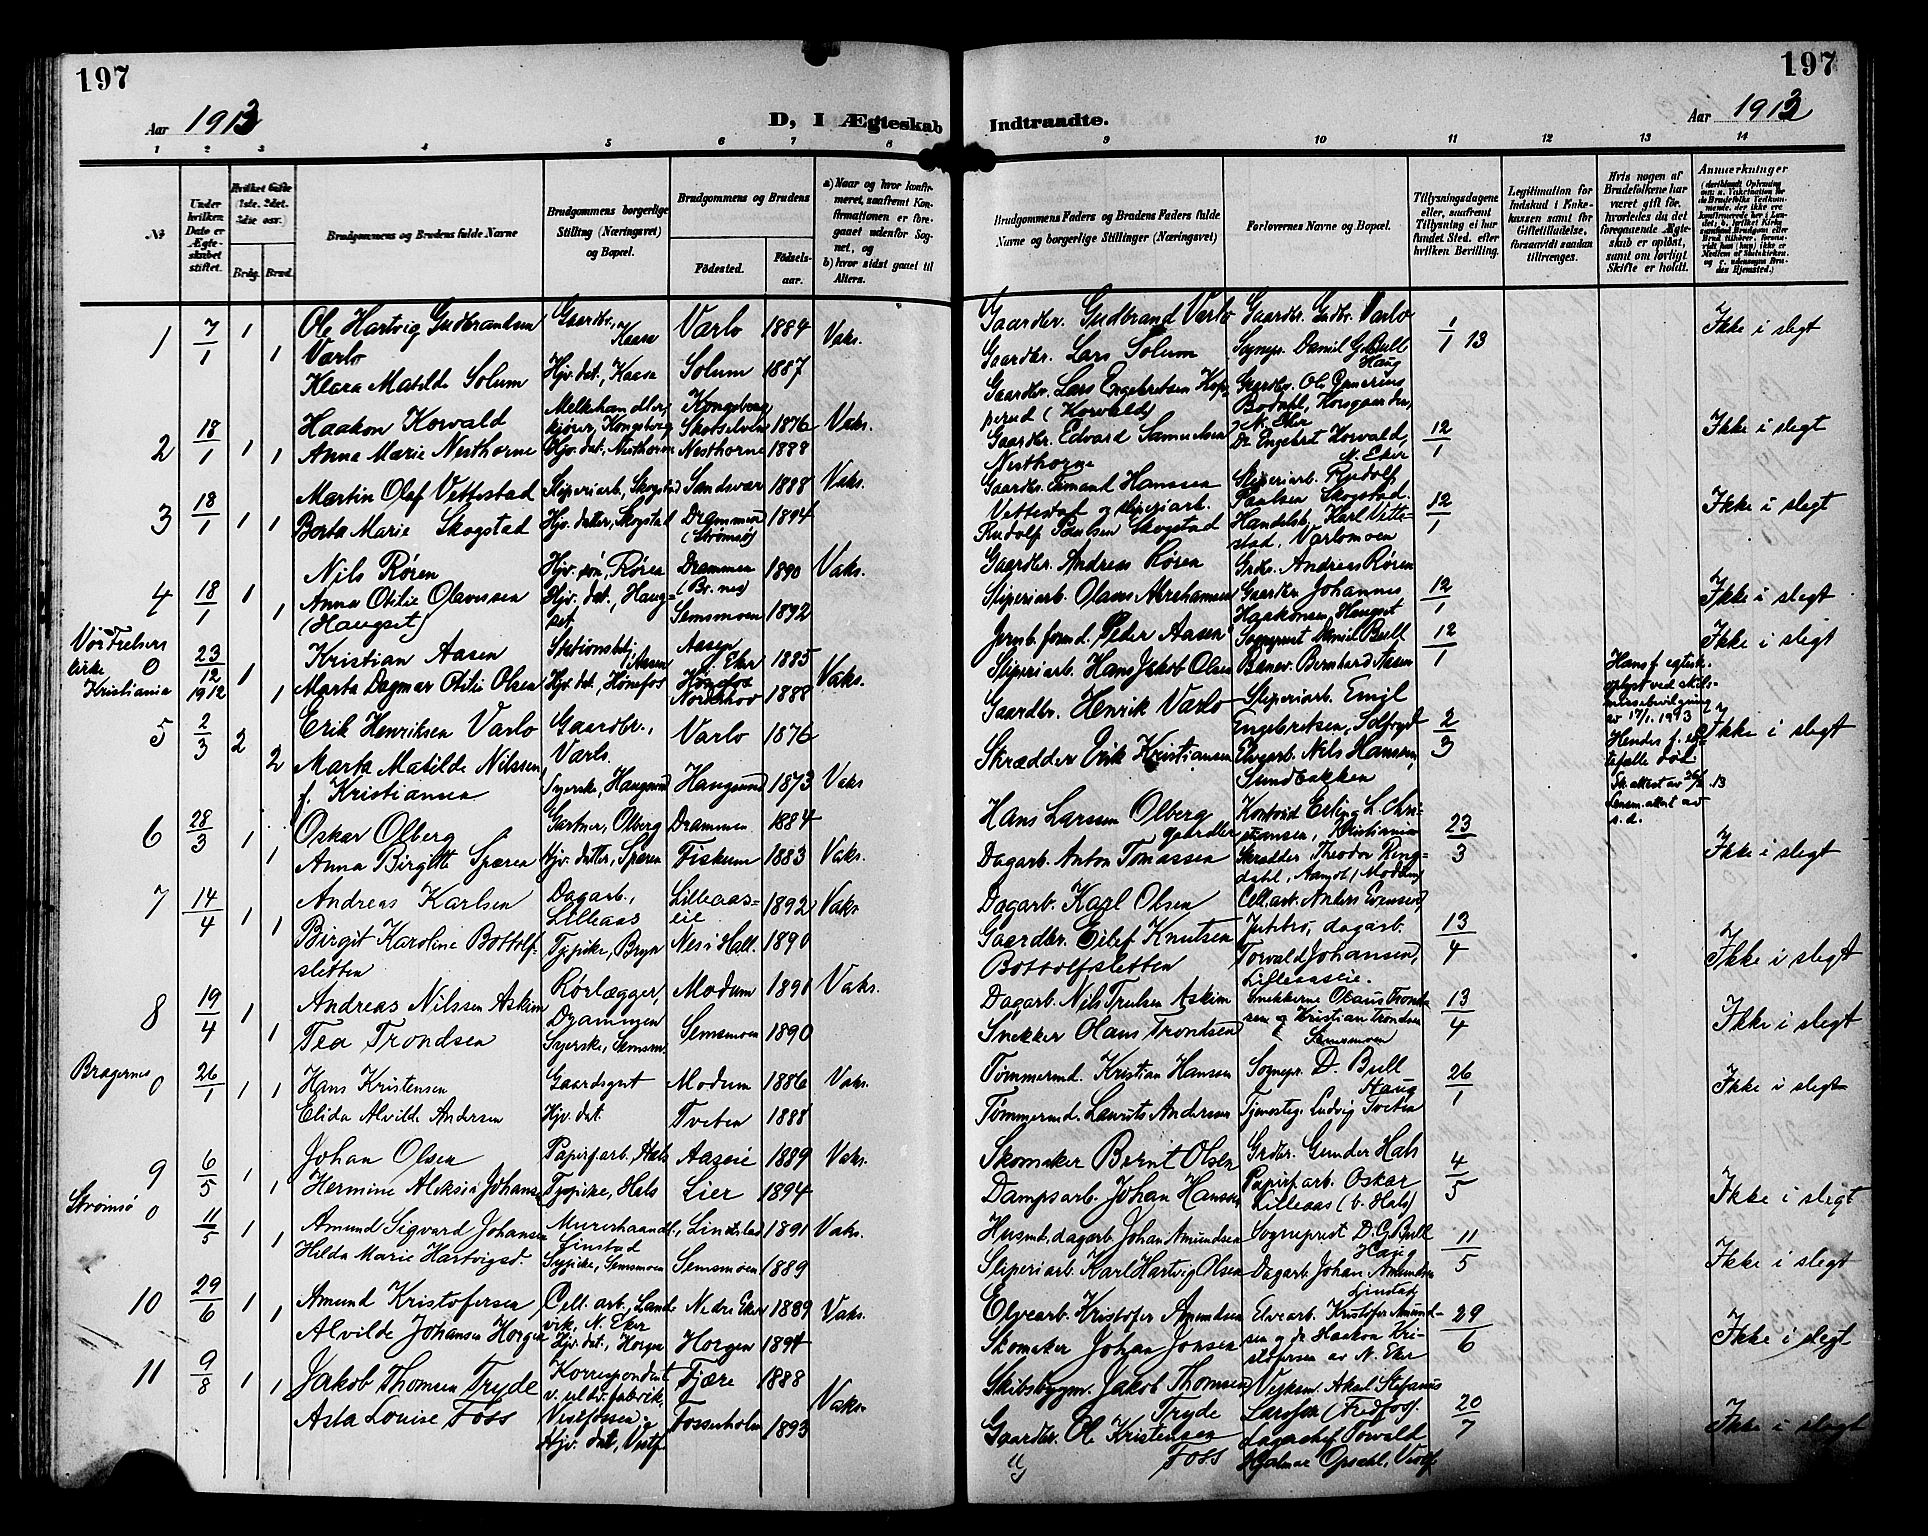 197
197
Aar 1913
D, I Ægteskab Indtraadte.
Aar 1913
1 2 3 4 5 6 7 8 9 10 11 12 13 14
No.
Under hvilken Dato er Ægteskabet stiftet.
Hvilket Gifte (1ste, 2det, 3die osv.)
Brdg. Brud.
Brudgommens og Brudens fulde Navne
Brudgommens borgerlige Stilling (Næringsvei) og Bopæl.
Brudgommens og Brudens
Fødested. Fødselsaar.
a) Naar og hvor konfirmeret, saafremt Konfirmationen er foregaaet udenfor Sognet, og
b) hvor sidst gaaet til Alters.
Brudgommens Faders og Brudens Faders fulde Navne og borgerlige Stillinger (Næringsvei)
Forlovernes Navne og Bopæl.
Tillysningsdagene eller, saafremt Tillysning ei har fundet Sted, efter hvilken Bevilling.
Legitimation for Indskud i Enkekassen samt for Giftetilladelse, forsaavidt saadan tiltrænges.
Hvis nogen af Brudefolkene har været gift før, hvorledes da det foregaaende Ægteskab er opløst, samt om lovligt Skifte er holdt.
Anmærkninger
1 7/1 1 Ole Hartvig Gudbrandsen Gaardbr., Kaasa Varlo 1884 Vaks. Gaardbr. Gudbrand Varlo Gaardbr. Gudbr. Varlo 1/1 13 Ikke i slegt
Varlo
1 Klara Matilde Solum Hjv. dat., Kaasa Solum 1887 Gaardbr. Lars Solum Sognepr. Daniel G. Bull Haug
2 18/1 1 Haakon Korvald Melkehandler, kjører, Kongsberg Kongsberg Skotselven 1876 Vaks. Gaardbr. Lars Engebretsen Kopperud (Korvald) Gaardbr. Ole Gunerius Bodahl, Korsgaarden, N. Eker 12/1 Ikke i slegt
1 Anna Marie Nesthorne Hjv. dat., Nesthorne Nesthorne 1888 Gaardbr. Edvard Samuelsen Nesthorne Do. Engebret Korvald, N. Eker
3 18/1 1 Martin Olaf Vettestad Sliperiarb., Skogstad Sandsvær 1888 Vaks. Gaardbr. Amund Hanssen Vettestad og sliperiarb. Sliperiarb. Rudolf Paulsen Skogstad. 12/1 Ikke i slegt
1 Berta Marie Skogstad Hjv. datter, Skogstad Drammen (Strømsø) 1894 Rudolf Paulsen Skogstad Handelsb. Karl Vettestad, Varlomoen
4 18/1 1 Nils Røren Hjv. søn, Røren Drammen (Br. nes) 1890 Vaks. Gaardbr. Andreas Røren Grdbr. Andreas Røren 12/1 Ikke i slegt
1 Anna Otilie Olavssen (Haugset) Hjv. dat., Haugset Semsmoen 1892 Sliperiarb. Olaus Abrahamsen Gaardbr. Johannes Haakonsen, Haugset
Vor Frelsers kirke Kristiania 0 23/12 1912 1 Kristian Aasen Stationsbtj., Aasen Aasen Ø. Eker 1885 Vaks. Jernb. formd. Peder Aasen Sogneprest Daniel Bull 12/1 Ikke i slegt
1 Marta Dagmar Otilie Olsen Hjv. dat., Hønefos Hønefos Norderhov 1888 Sliperiarb. Hans Jakob Olsen Banev. Bernhard Aasen
5 2/3 2 Erik Henriksen Varlo Gaardbr., Varlo Varlo 1876 Gaardbr. Henrik Varlo Sliperiarb. Emil Engebretsen, Solfoged 2/3 Hans f. egtesk. opløst ved skilsmissebevilgning av 17/1. 1913 Ikke i slegt
2 Marta Matilde Nilssen f. Kristiansen Syerske, Haugsund Haugsund 1873 Vaks Skrædder Erik Kristiansen Elvearb. Nils Hansen, Sundbakken Hendes f. egtefælle død Sk. attest av 26/2 13 Lensm. attest av s. d.
6 28/3 1 Oskar Olberg Gartner, Olberg Drammen 1884 Hans Larssen Olberg gaardbr Kontorist Erling L. Christiansen, Kristiania 23/3 Ikke i slegt
1 Anna Birgitte Spæren Hjv. datter, Spæren Fiskum 1883 Vaks. Dagarb. Anton Tomassen Skrædder Theodor Ringdahl, Aamot, Modum
7 14/4 1 Andreas Karlsen Dagarb., Lilleaas Lilleaaseie 1892 Vaks Dagarb. Karl Olsen Cell. arb. Anders Evensen 13/4 Ikke i slegt
1 Birgit Karoline Bottolfsletten Tjpike, Bryn Nes i Hall. 1890 Gaardbr. Eilef Knutsen Bottolfsletten dagarb. Torvald Johansen, Lilleaaseie.
8 19/4 1 Andreas Nilssen Askim Rørlægger, Drammen Modum 1891 Vaks. Dagarb. Nils Trulsen Askim Snekkerne Olaus Trondsen og Kristian Trondsen Semsmoen 13/4 Ikke i slegt
1 Tea Trondsen Syerske, Semsm. Semsmoen 1890 Snekker Olaus Trondsen
Bragernes 0 26/1 1 Hans Kristensen Gaardsgut Modum 1886 Vaks. Tømmermd. Kristian Hansen Sognepr. D. Bull Haug 26/1 Ikke i slegt
1 Elida Alvilde Andersen Hjv. dat. Tveten 1888 Tømmermd. Lauritz Andersen Tjenesteg. Ludvig Tveten
9 6/5 1 Johan Olsen Papirf. arb. Hals Aaseie 1889 Vaks. Skomaker Bernt Olsen Grdbr. Gunder Hals 4/5 Ikke i slegt
1 Hermine Aleksia Johansen Tjpike, Hals Lier 1894 Dampsarb. Johan Hansen Papirf. arb. Oskar Lilleaas (b. Hals)
Strømsø 0 11/5 1 Amund Sigvard Johansen Murerhaandl., Linstad Linstad 1891 Vaks. Husmd., dagarb. Johan Amundsen Sogneprest D. G. Bull Haug 11/5 Ikke i slegt
1 Hilda Marie Hartvigsd. Sypike, Semsmoen Semsmoen 1889 Sliperiarb. Karl Hartvig Olsen Dagarb. Johan Amundsen Linstad
10 29/6 1 Amund Kristofersen Cell. arb., Landvik, N. Eker Nedre Eker 1889 Vaks. Elvearb. Kristofer Amundsen Elvearb. Kristofer Amundsen og do. Haakon Kristofersen av N. Eker 29/6 Ikke i slegt
1 Alvilde Johansen Horgen Hjv. dat., Horgen Horgen 1894 Skomaker Johan Jonsen
11 9/8 1 Jakob Thomsen Tryde Korrespondent v. uldv. fabrik, Vestfossen Fjære 1888 Vaks. Skibsbygm. Jakob Thomsen Tryde Verksm. Aksel Stefanus Larssen (Fredfos). 20/7 Ikke i slegt
1 Asta Louise Foss Hjv. dat., Vestf. Fosserholm 1893 Gaardbr. Ole Kristensen Foss Lagerchef Torvald Hjalmar Opsahl, Vestf.